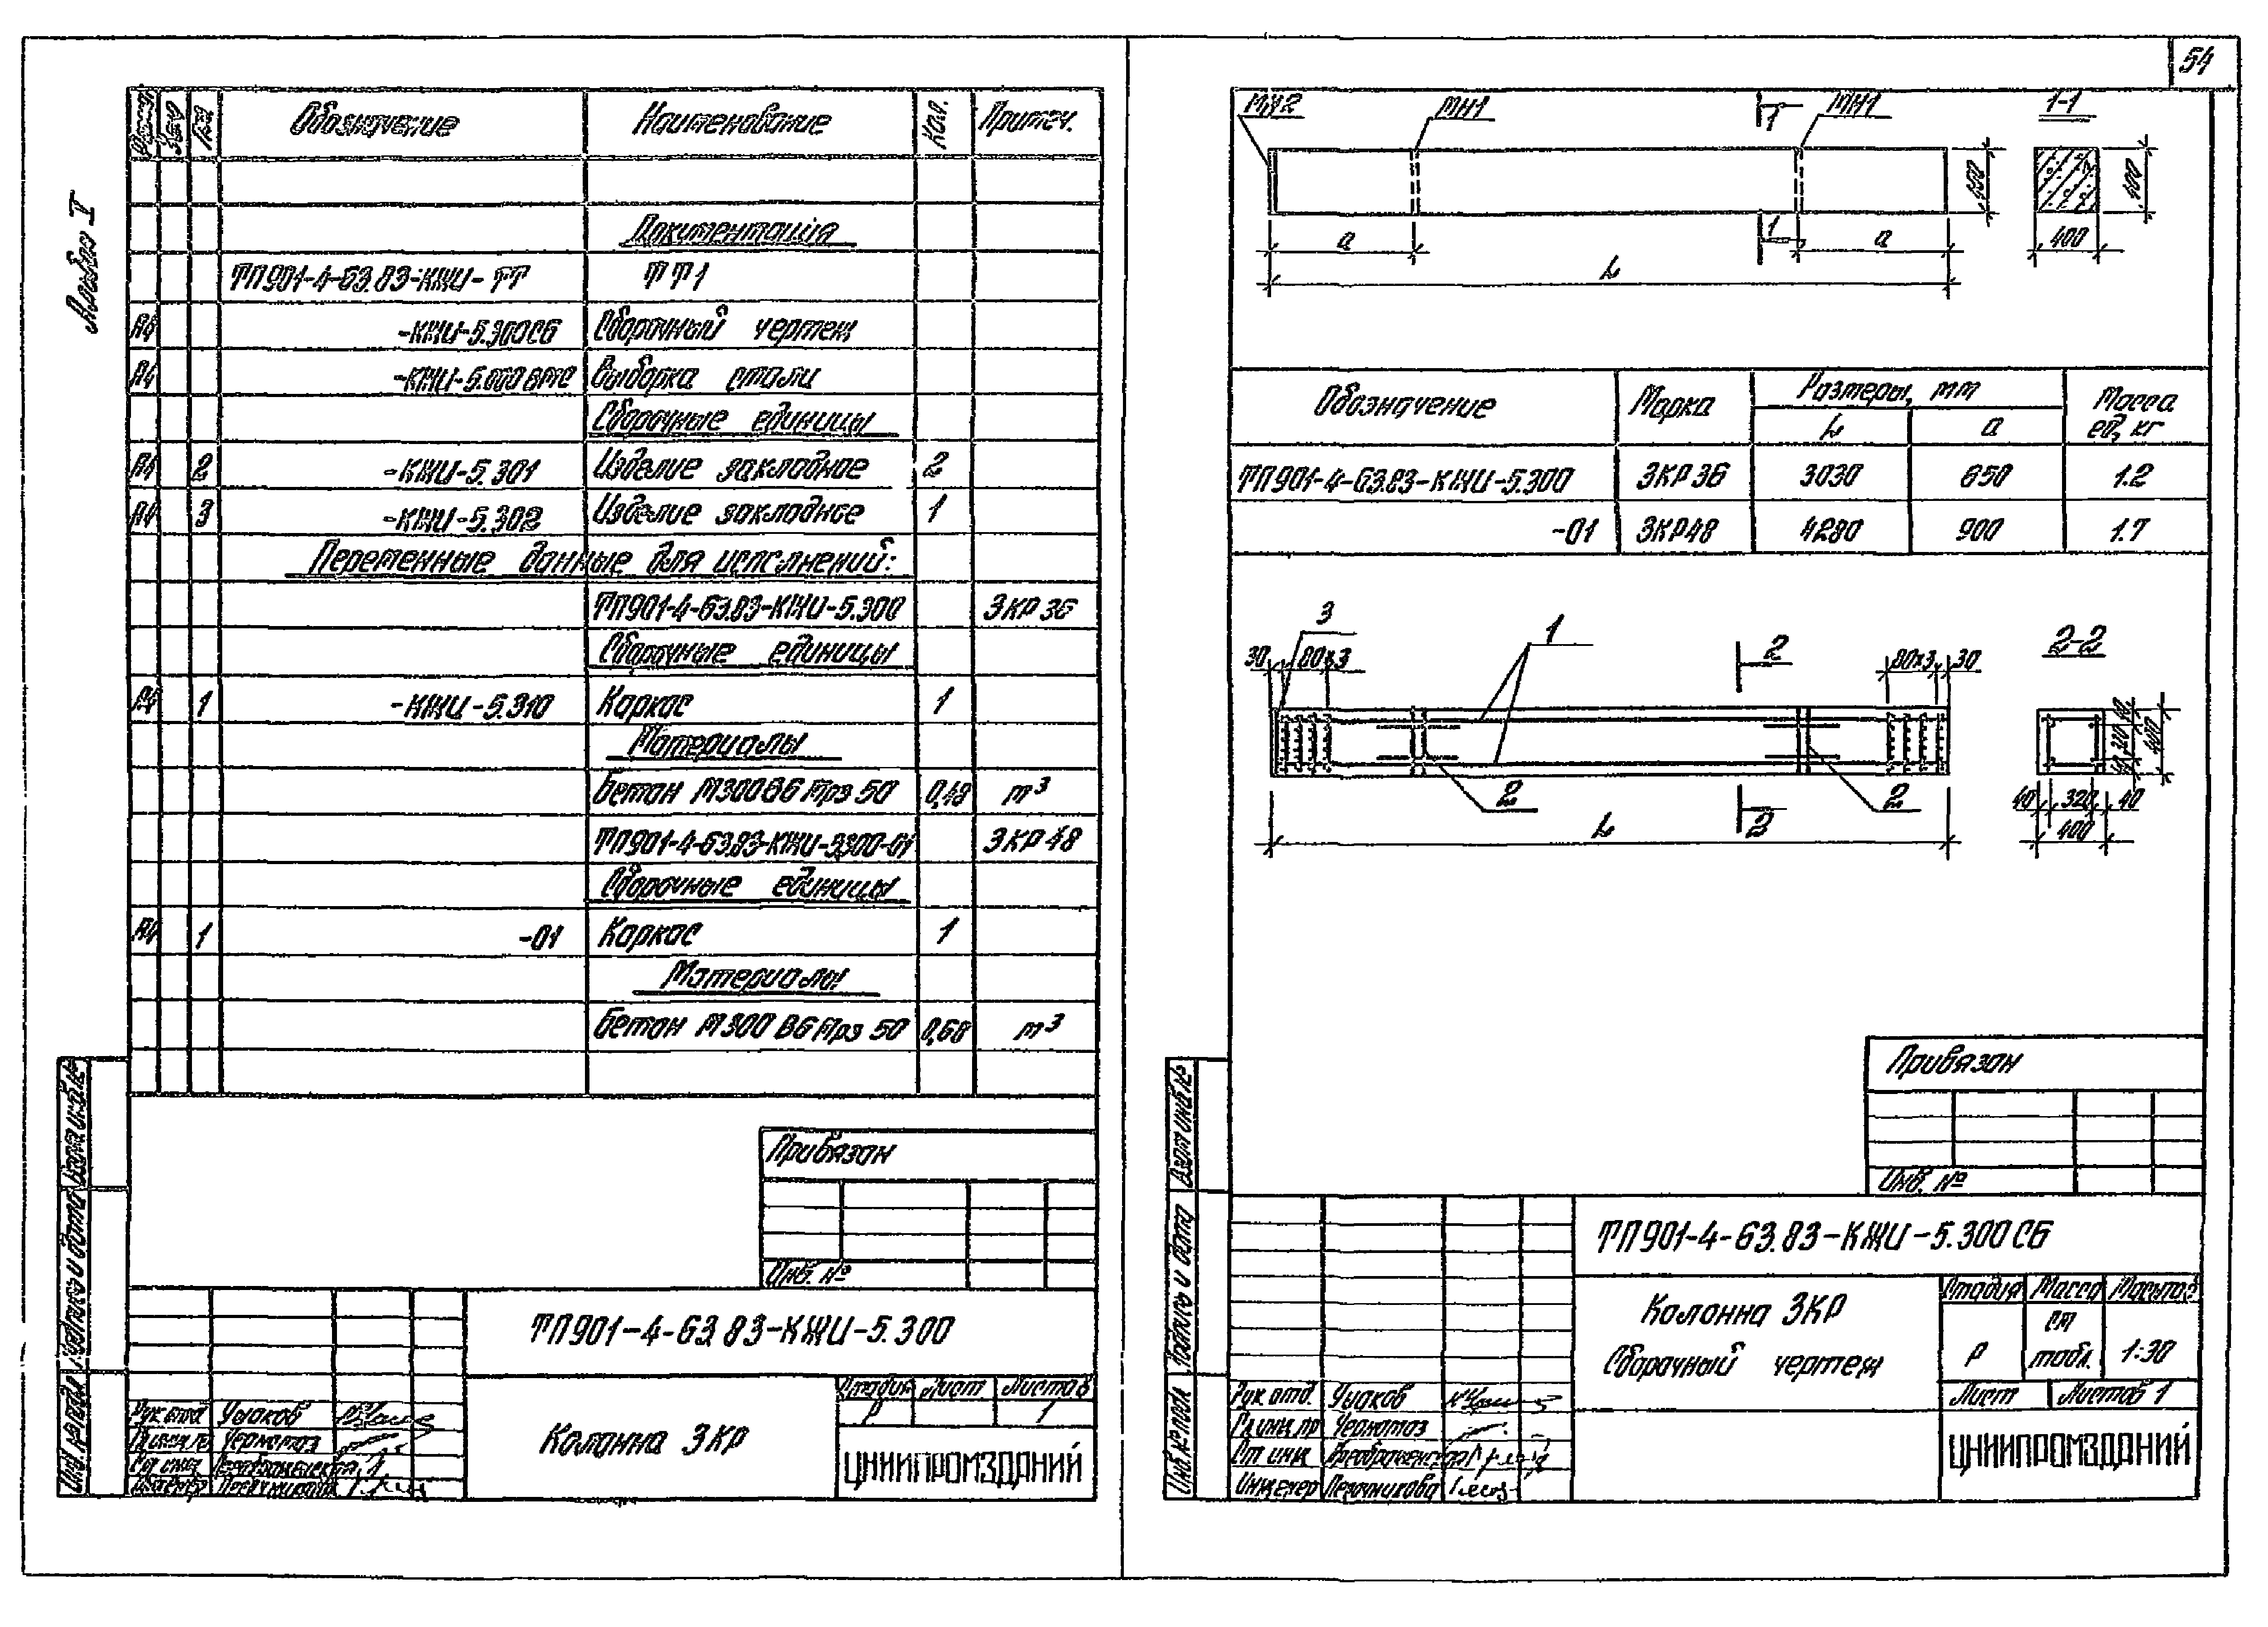 54
Альбом V
Формат Зона Поз. Обозначение Наименование Кол. Примеч.
Документация
ТП901-4-63.83-КЖИ-ТТ ТТ1
А4 -КЖИ-5.300СБ Сборочный чертеж
А4 -КЖИ-5.000ВМС Выборка стали
Сборочные единицы
А4 2 -КЖИ-5.301 Изделие закладное 2
А4 3 -КЖИ-5.302 Изделие закладное 1
Переменные данные для исполнений:
ТП901-4-63.83-КЖИ-5.300 3КР36
Сборочные единицы
А4 1 -КЖИ-5.310 Каркас 1
Материалы
Бетон М300 В6 Мрз 50 0,48 м³
ТП901-4-63.83-КЖИ-5.300-01 3КР48
Сборочные единицы
А4 1 -01 Каркас 1
Материалы
Бетон М300 В6 Мрз 50 0,68 м³
Привязан
Инв. №
ТП901-4-63.83-КЖИ-5.300
Колонна 3КР
Стадия Лист Листов
Р 1
ЦНИИПРОМЗДАНИЙ
Рук отд Ушаков
Гл инж пр Черномаз
Ст инж Преображенская
Инженер Песочникова
Взам инв. №
Подпись и дата
Инв. № подл
МН2 МН1 1 МН1 1-1
400 400
а 1 а 400
L
Обозначение Марка Размеры, мм Масса ед, кг
L а
ТП901-4-63.83-КЖИ-5.300 3КР36 3030 650 1.2
-01 3КР48 4280 900 1.7
3 1 2 2-2
30 80х3 80х3 30
40 320 40 400
2 2
L 2
40 320 40
400
Привязан
Инв. №
ТП901-4-63.83-КЖИ-5.300СБ
Колонна 3КР
Сборочный чертеж
Стадия Масса Масштаб
Р см табл. 1:30
Лист Листов 1
ЦНИИПРОМЗДАНИЙ
Рук отд. Ушаков
Гл инж. пр Черномаз
Ст инж Преображенская
Инженер Песочникова
Взам инв №
Подпись и дата
Инв. № подл